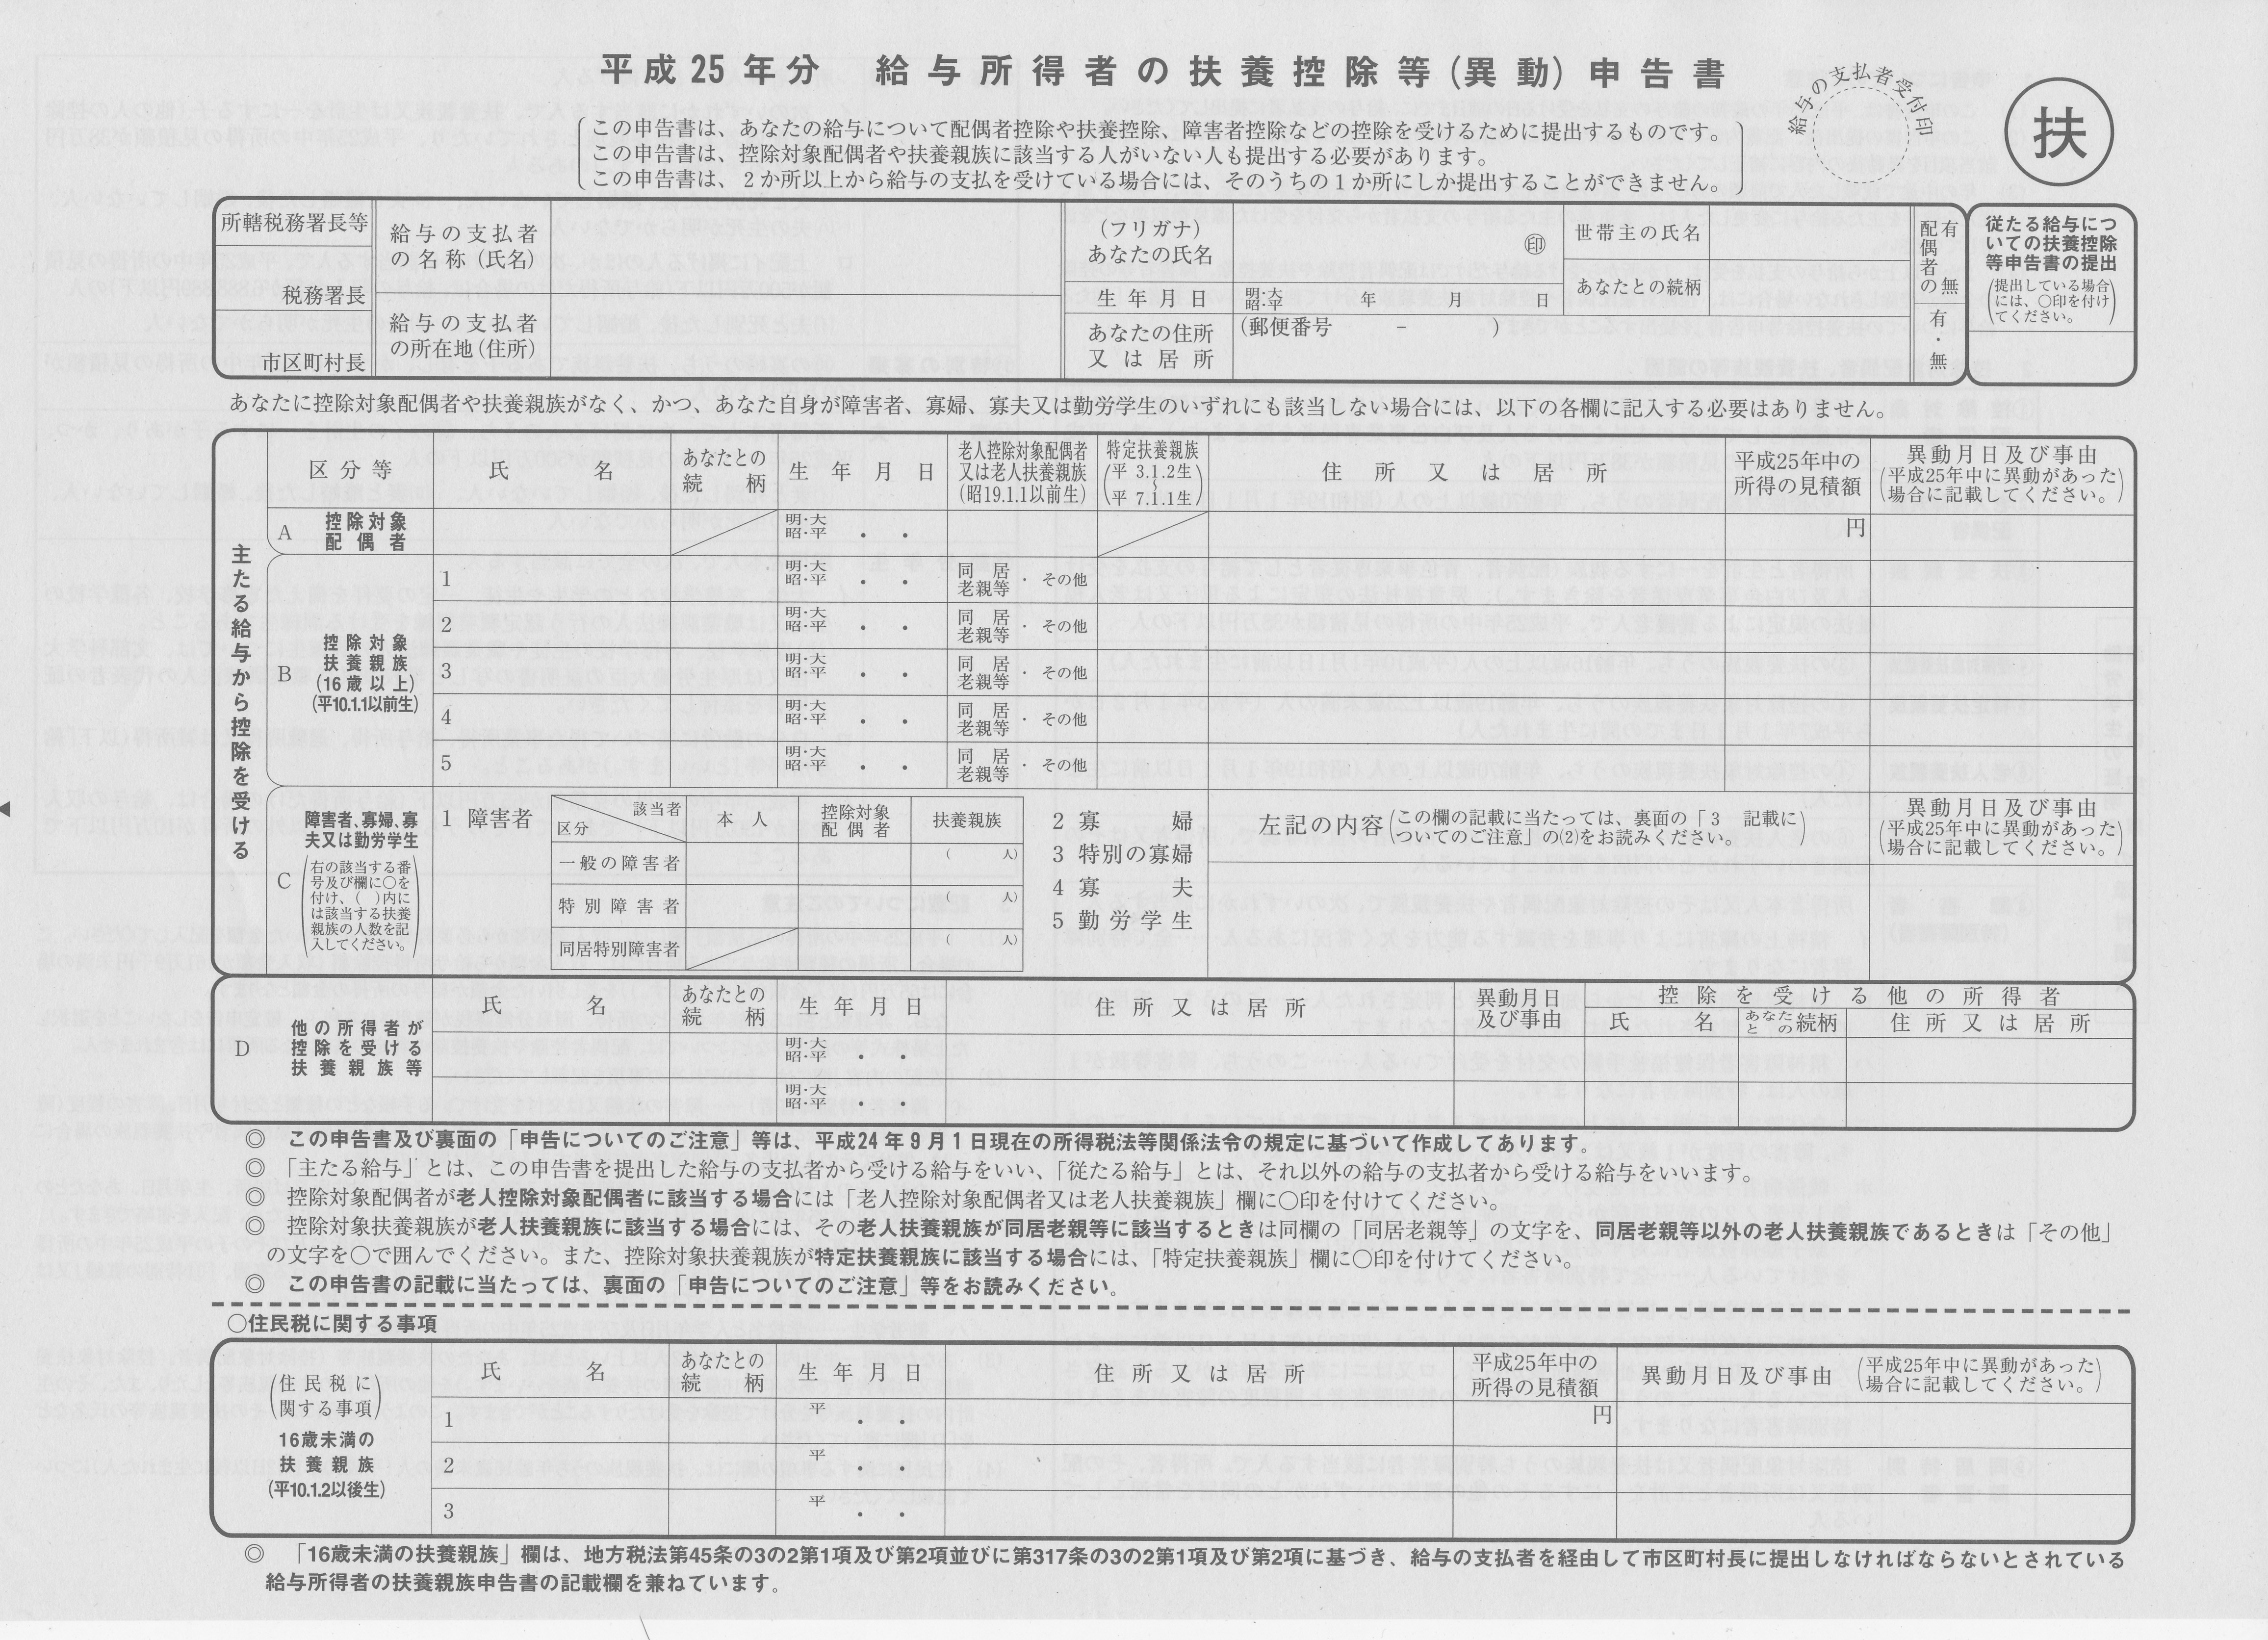 平成25年分　給与所得者の扶養控除等(異動)申告書
給与の支払者受付印
扶
この申告書は、あなたの給与について配偶者控除や扶養控除、障害者控除などの控除を受けるために提出するものです。
この申告書は、控除対象配偶者や扶養親族に該当する人がいない人も提出する必要があります。
この申告書は、２か所以上から給与の支払を受けている場合には、そのうちの１か所にしか提出することができません。
所轄税務署長等
税務署長
市区町村長
給与の支払者の名称(氏名)
給与の支払者の所在地(住所)
(フリガナ)
あなたの氏名
㊞
生年月日
明・大
昭・平
年　月　日
あなたの住所又は居所
(郵便番号　－　)
世帯主の氏名
あなたとの続柄
配偶者の有無
有・無
従たる給与についての扶養控除等申告書の提出
(提出している場合には、○印を付けてください。)
あなたに控除対象配偶者や扶養親族がなく、かつ、あなた自身が障害者、寡婦、寡夫又は勤労学生のいずれにも該当しない場合には、以下の各欄に記入する必要はありません。
主たる給与から控除を受ける
区分等
氏　名
あなたとの続柄
生年月日
老人控除対象配偶者又は老人扶養親族(昭19.1.1以前生)
特定扶養親族(平 3.1.2生～平 7.1.1生)
住所又は居所
平成25年中の所得の見積額
異動月日及び事由(平成25年中に異動があった場合に記載してください。)
A 控除対象配偶者
明・大
昭・平　・　・
円
B 控除対象扶養親族(16歳以上)(平10.1.1以前生)
1 明・大 昭・平　・　・ 同居老親等・その他
2 明・大 昭・平　・　・ 同居老親等・その他
3 明・大 昭・平　・　・ 同居老親等・その他
4 明・大 昭・平　・　・ 同居老親等・その他
5 明・大 昭・平　・　・ 同居老親等・その他
C 障害者、寡婦、寡夫又は勤労学生
(右の該当する番号及び欄に○を付け、(　)内には該当する扶養親族の人数を記入してください。)
1 障害者
該当者
区分
本人
控除対象配偶者
扶養親族
一般の障害者
(　人)
特別障害者
(　人)
同居特別障害者
(　人)
2 寡婦
3 特別の寡婦
4 寡夫
5 勤労学生
左記の内容(この欄の記載に当たっては、裏面の「3　記載についてのご注意」の(2)をお読みください。)
異動月日及び事由(平成25年中に異動があった場合に記載してください。)
D 他の所得者が控除を受ける扶養親族等
氏　名
あなたとの続柄
生年月日
住所又は居所
異動月日及び事由
控除を受ける他の所得者
氏　名
あなたとの続柄
住所又は居所
明・大 昭・平　・　・
明・大 昭・平　・　・
◎　この申告書及び裏面の「申告についてのご注意」等は、平成24年9月1日現在の所得税法等関係法令の規定に基づいて作成してあります。
◎　「主たる給与」とは、この申告書を提出した給与の支払者から受ける給与をいい、「従たる給与」とは、それ以外の給与の支払者から受ける給与をいいます。
◎　控除対象配偶者が老人控除対象配偶者に該当する場合には「老人控除対象配偶者又は老人扶養親族」欄に○印を付けてください。
◎　控除対象扶養親族が老人扶養親族に該当する場合には、その老人扶養親族が同居老親等に該当するときは同欄の「同居老親等」の文字を、同居老親等以外の老人扶養親族であるときは「その他」
の文字を○で囲んでください。また、控除対象扶養親族が特定扶養親族に該当する場合には、「特定扶養親族」欄に○印を付けてください。
◎　この申告書の記載に当たっては、裏面の「申告についてのご注意」等をお読みください。
○住民税に関する事項
(住民税に関する事項)
16歳未満の扶養親族(平10.1.2以後生)
氏　名
あなたとの続柄
生年月日
住所又は居所
平成25年中の所得の見積額
異動月日及び事由(平成25年中に異動があった場合に記載してください。)
1 平　・　・
円
2 平　・　・
3 平　・　・
◎　「16歳未満の扶養親族」欄は、地方税法第45条の3の2第1項及び第2項並びに第317条の3の2第1項及び第2項に基づき、給与の支払者を経由して市区町村長に提出しなければならないとされている
給与所得者の扶養親族申告書の記載欄を兼ねています。